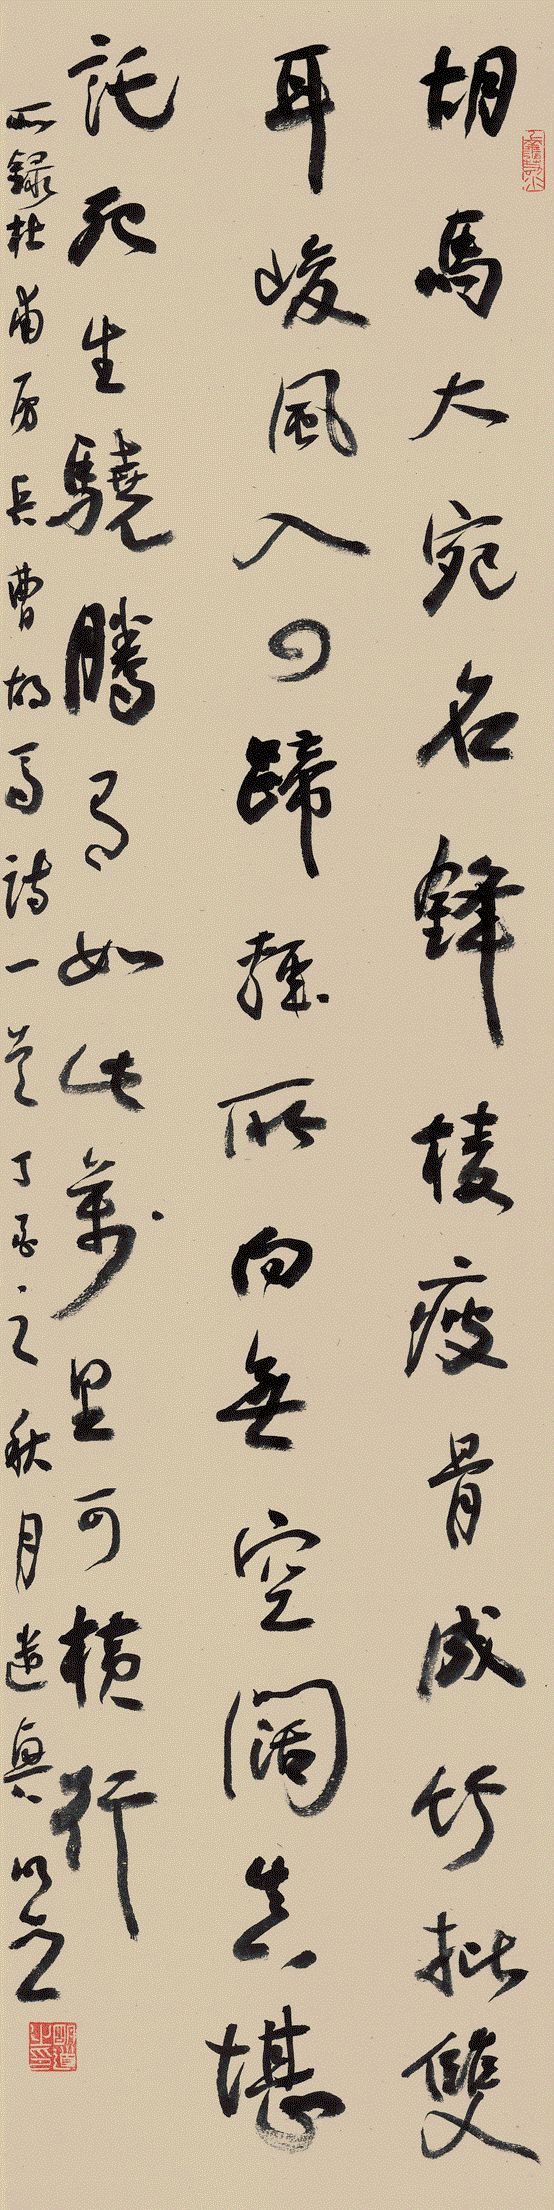 胡馬大宛名鋒棱瘦骨成竹批雙
耳峻風入四蹄輕所向無空闊真堪
託死生驍騰有如此萬里可橫行
録杜甫房兵曹胡馬詩一首丁亥之秋月遣興